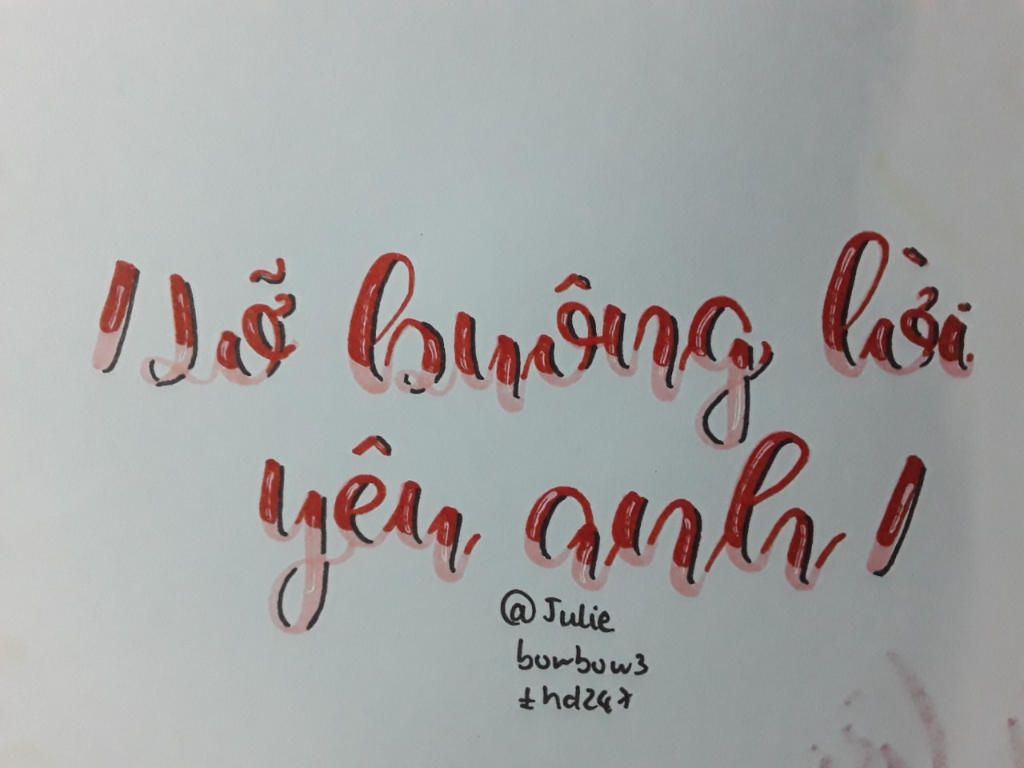 | Lỡ buông lời
yên anh |
@Julie
bowbow3
thd247